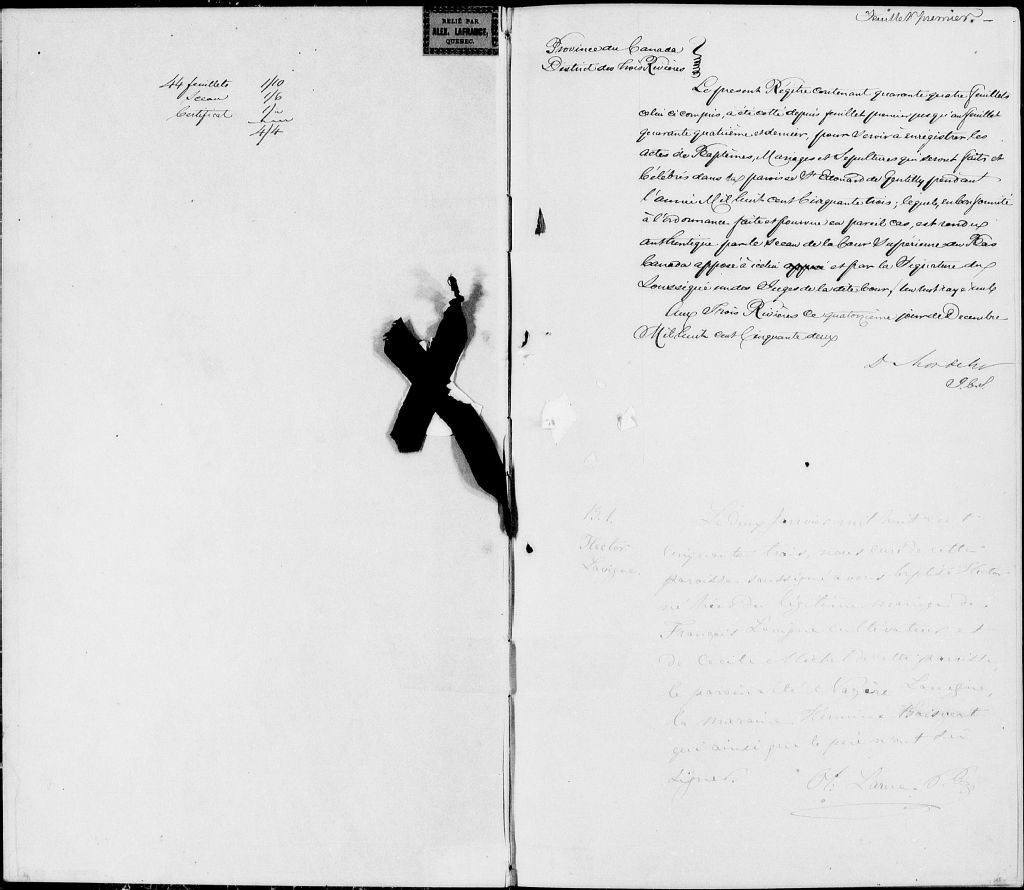 RELIÉ PAR
ALEX. LAFRANCE,
QUEBEC.
44 feuillets 1/10
Sceau 1/6
Certificat 1/"
4/4
Feuillet premier. —
Province du Canada
District des Trois Rivières
Le présent Régitre contenant quarante quatre feuillets
celui ci compris, a été cotté depuis feuillet premier jusqu'au feuillet
quarante quatrième et dernier, pour servir à enregistrer les
actes de Baptêmes, Mariages et Sepultures qui seront faits et
Célébrés dans la paroisse St Edouard de Gentilly pendant
l'année Mil huit cent Cinquante trois; lequel, en conformité
à l'ordonnance faite et pourvue en pareil cas, est rendu
authentique par le Sceau de la Cour Supérieure du Bas
Canada apposé à icelui et par la Signature du
Soussigné un des Juges de la dite Cour,
Aux Trois Rivières ce quatorzième jour de Decembre
Mil huit cent Cinquante deux
D. Mondelet
J.C.S.
B.1.
Hector
Lavigne.
Le deux janvier mil huit cent
cinquante trois, nous curé de cette
paroisse soussigné avons baptisé Hector
né hier du légitime mariage de
François Lavigne cultivateur et
de Cecile Michel de cette paroisse,
le parrain a été Lavigne,
la marraine Boisvert
qui ainsi que le père n'ont su
signer.